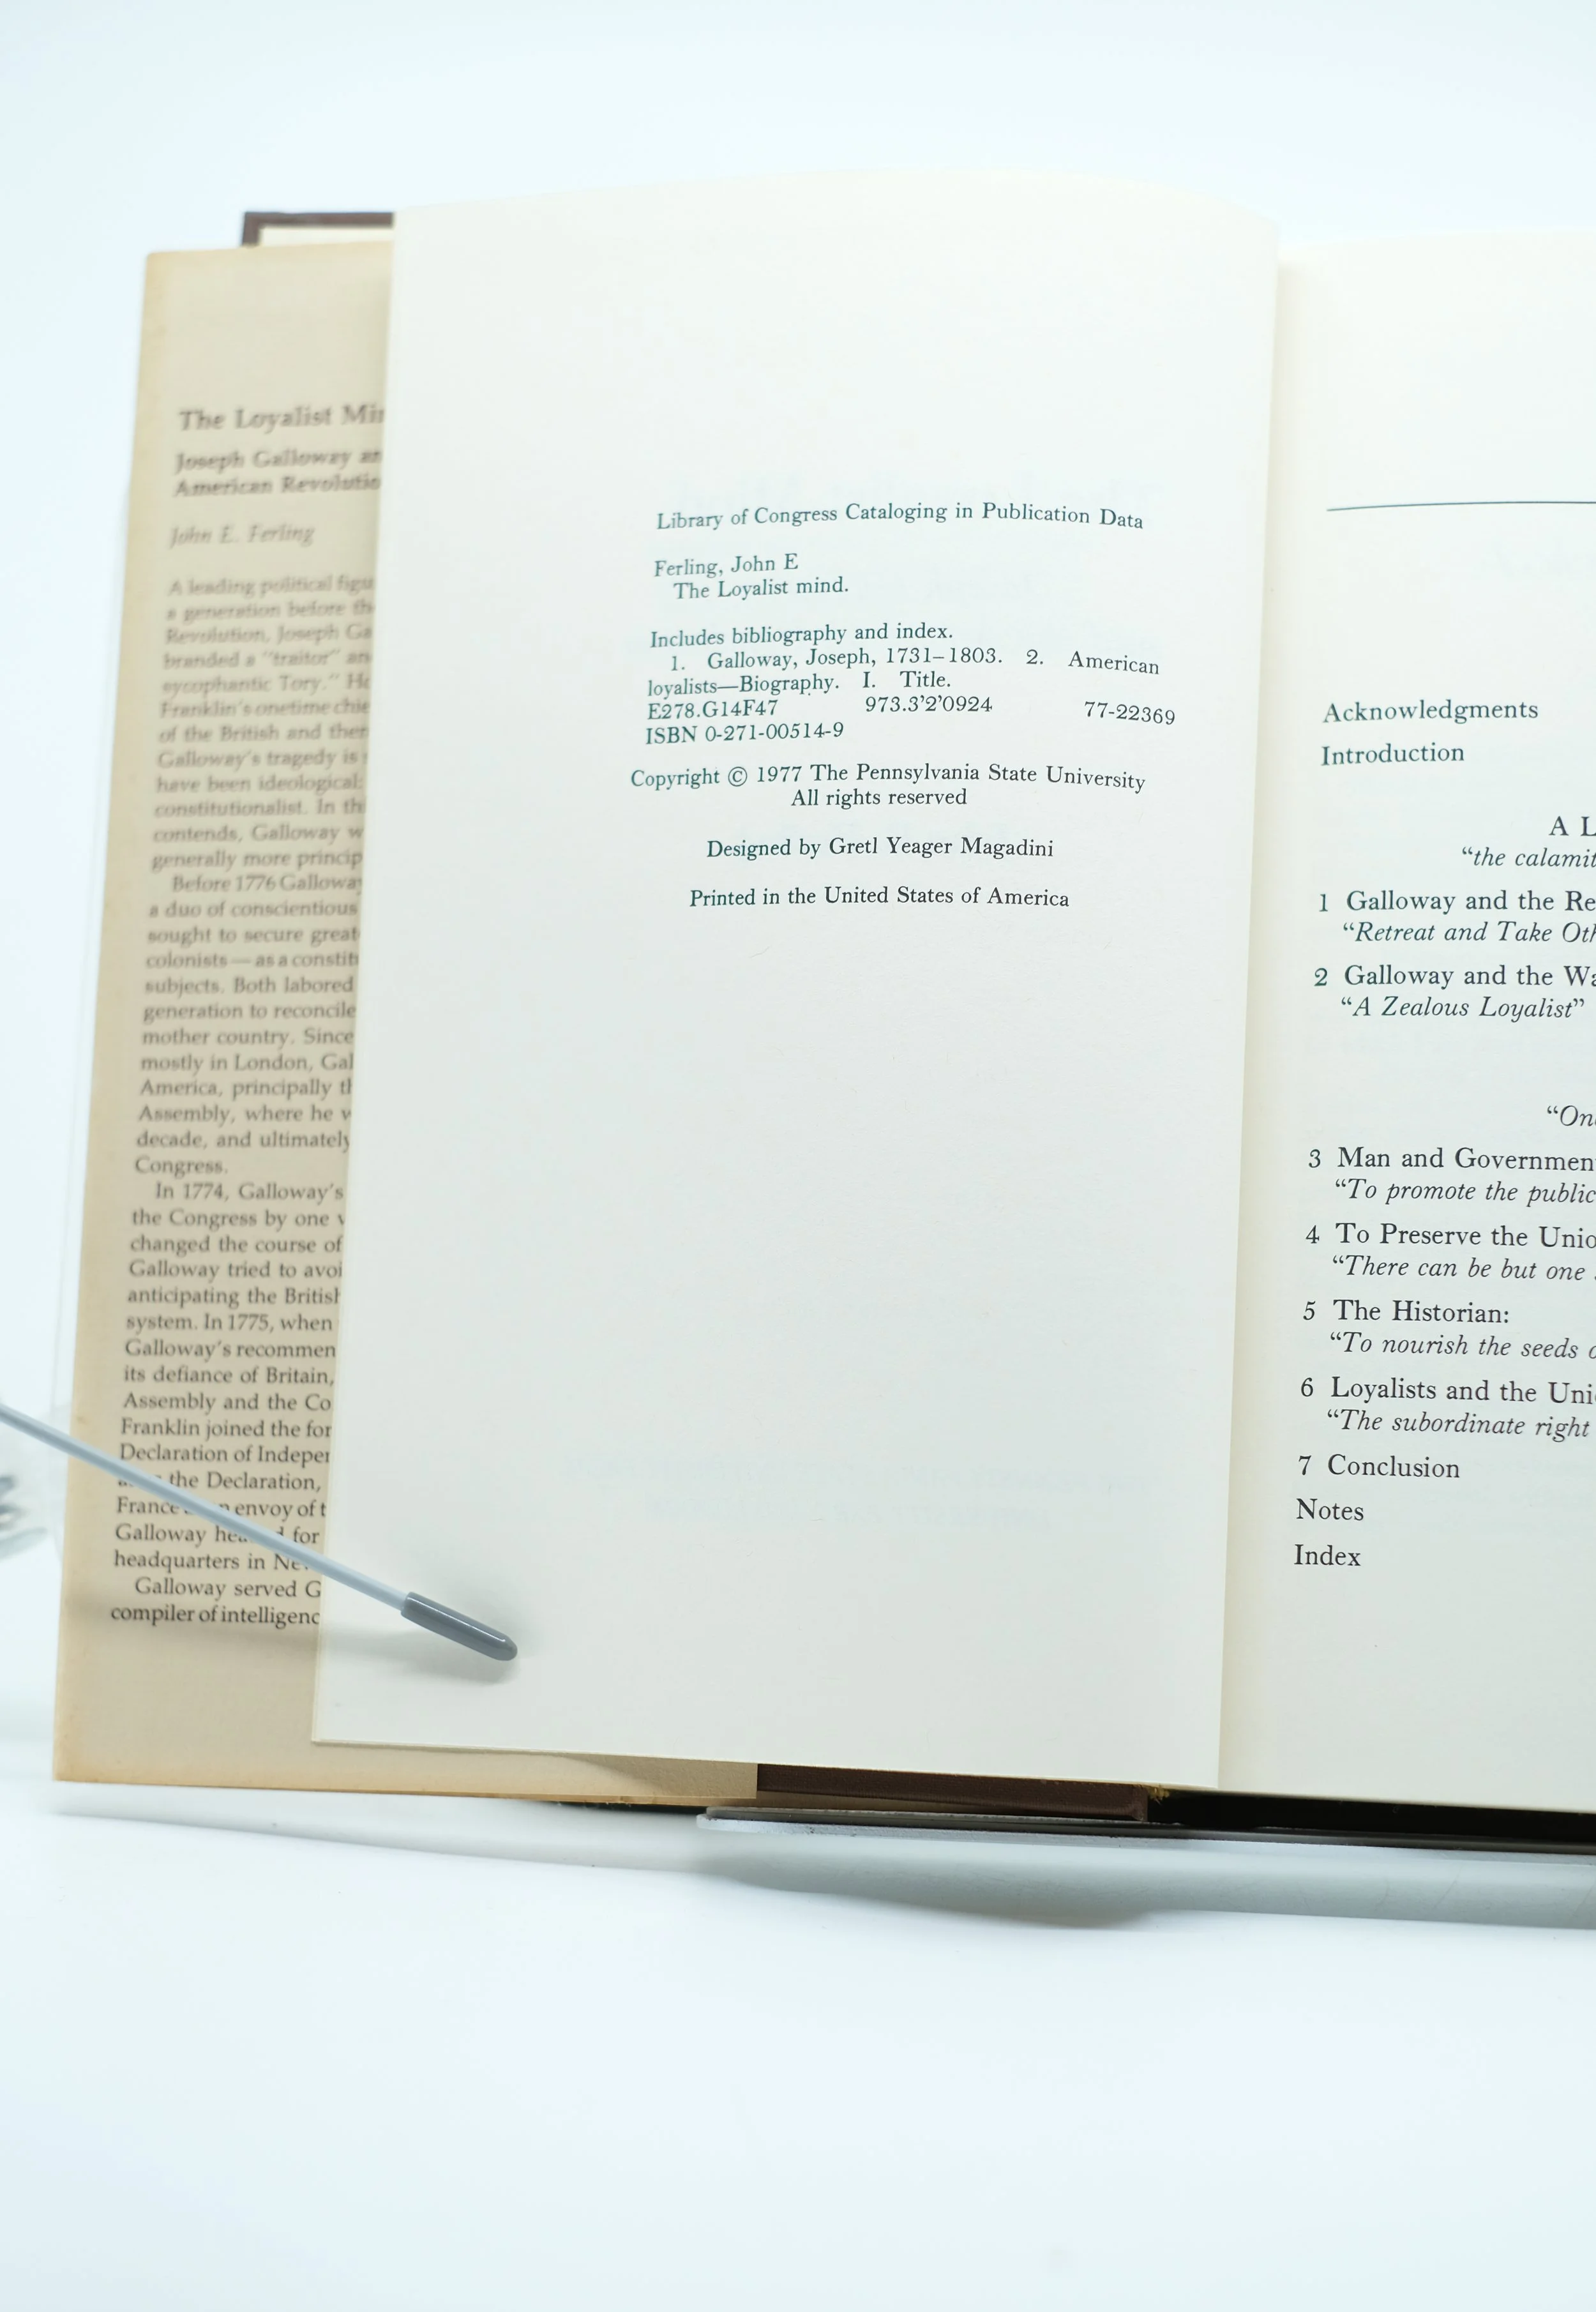 The Loyalist
Joseph Galloway
American
John E. Ferling
A leading political
a generation before
Revolution, Joseph
branded a "traitor"
sycophantic Tory."
Franklin's onetime
of the British and
Galloway's tragedy is
have been ideological:
constitutionalist. In
contends, Galloway
generally more
Before 1776
a duo of conscientious
sought to secure
colonists — as a
subjects. Both labored
generation to reconcile
mother country. Since
mostly in London,
America, principally
Assembly, where he
decade, and ultimately
Congress.
In 1774, Galloway's
the Congress by one
changed the course of
Galloway tried to
anticipating the
system. In 1775, when
Galloway's
its defiance of Britain,
Assembly and the
Franklin joined the
Declaration of
the Declaration,
France envoy of
Galloway for
headquarters in
Galloway served
compiler of
Library of Congress Cataloging in Publication Data
Ferling, John E
The Loyalist mind.
Includes bibliography and index.
1. Galloway, Joseph, 1731–1803. 2. American
loyalists—Biography. I. Title.
E278.G14F47 973.3'2'0924 77-22369
ISBN 0-271-00514-9
Copyright © 1977 The Pennsylvania State University
All rights reserved
Designed by Gretl Yeager Magadini
Printed in the United States of America
Acknowledgments
Introduction
A L
"the
1 Galloway and the
"Retreat and Take
2 Galloway and the
"A Zealous Loyalist"
3 Man and
"To promote the public
4 To Preserve the
"There can be but one
5 The Historian:
"To nourish the seeds
6 Loyalists and the
"The subordinate right
7 Conclusion
Notes
Index